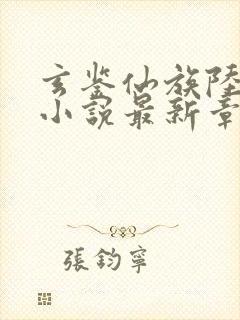 玄鉴仙族陸
小說最新章
張鈞寧